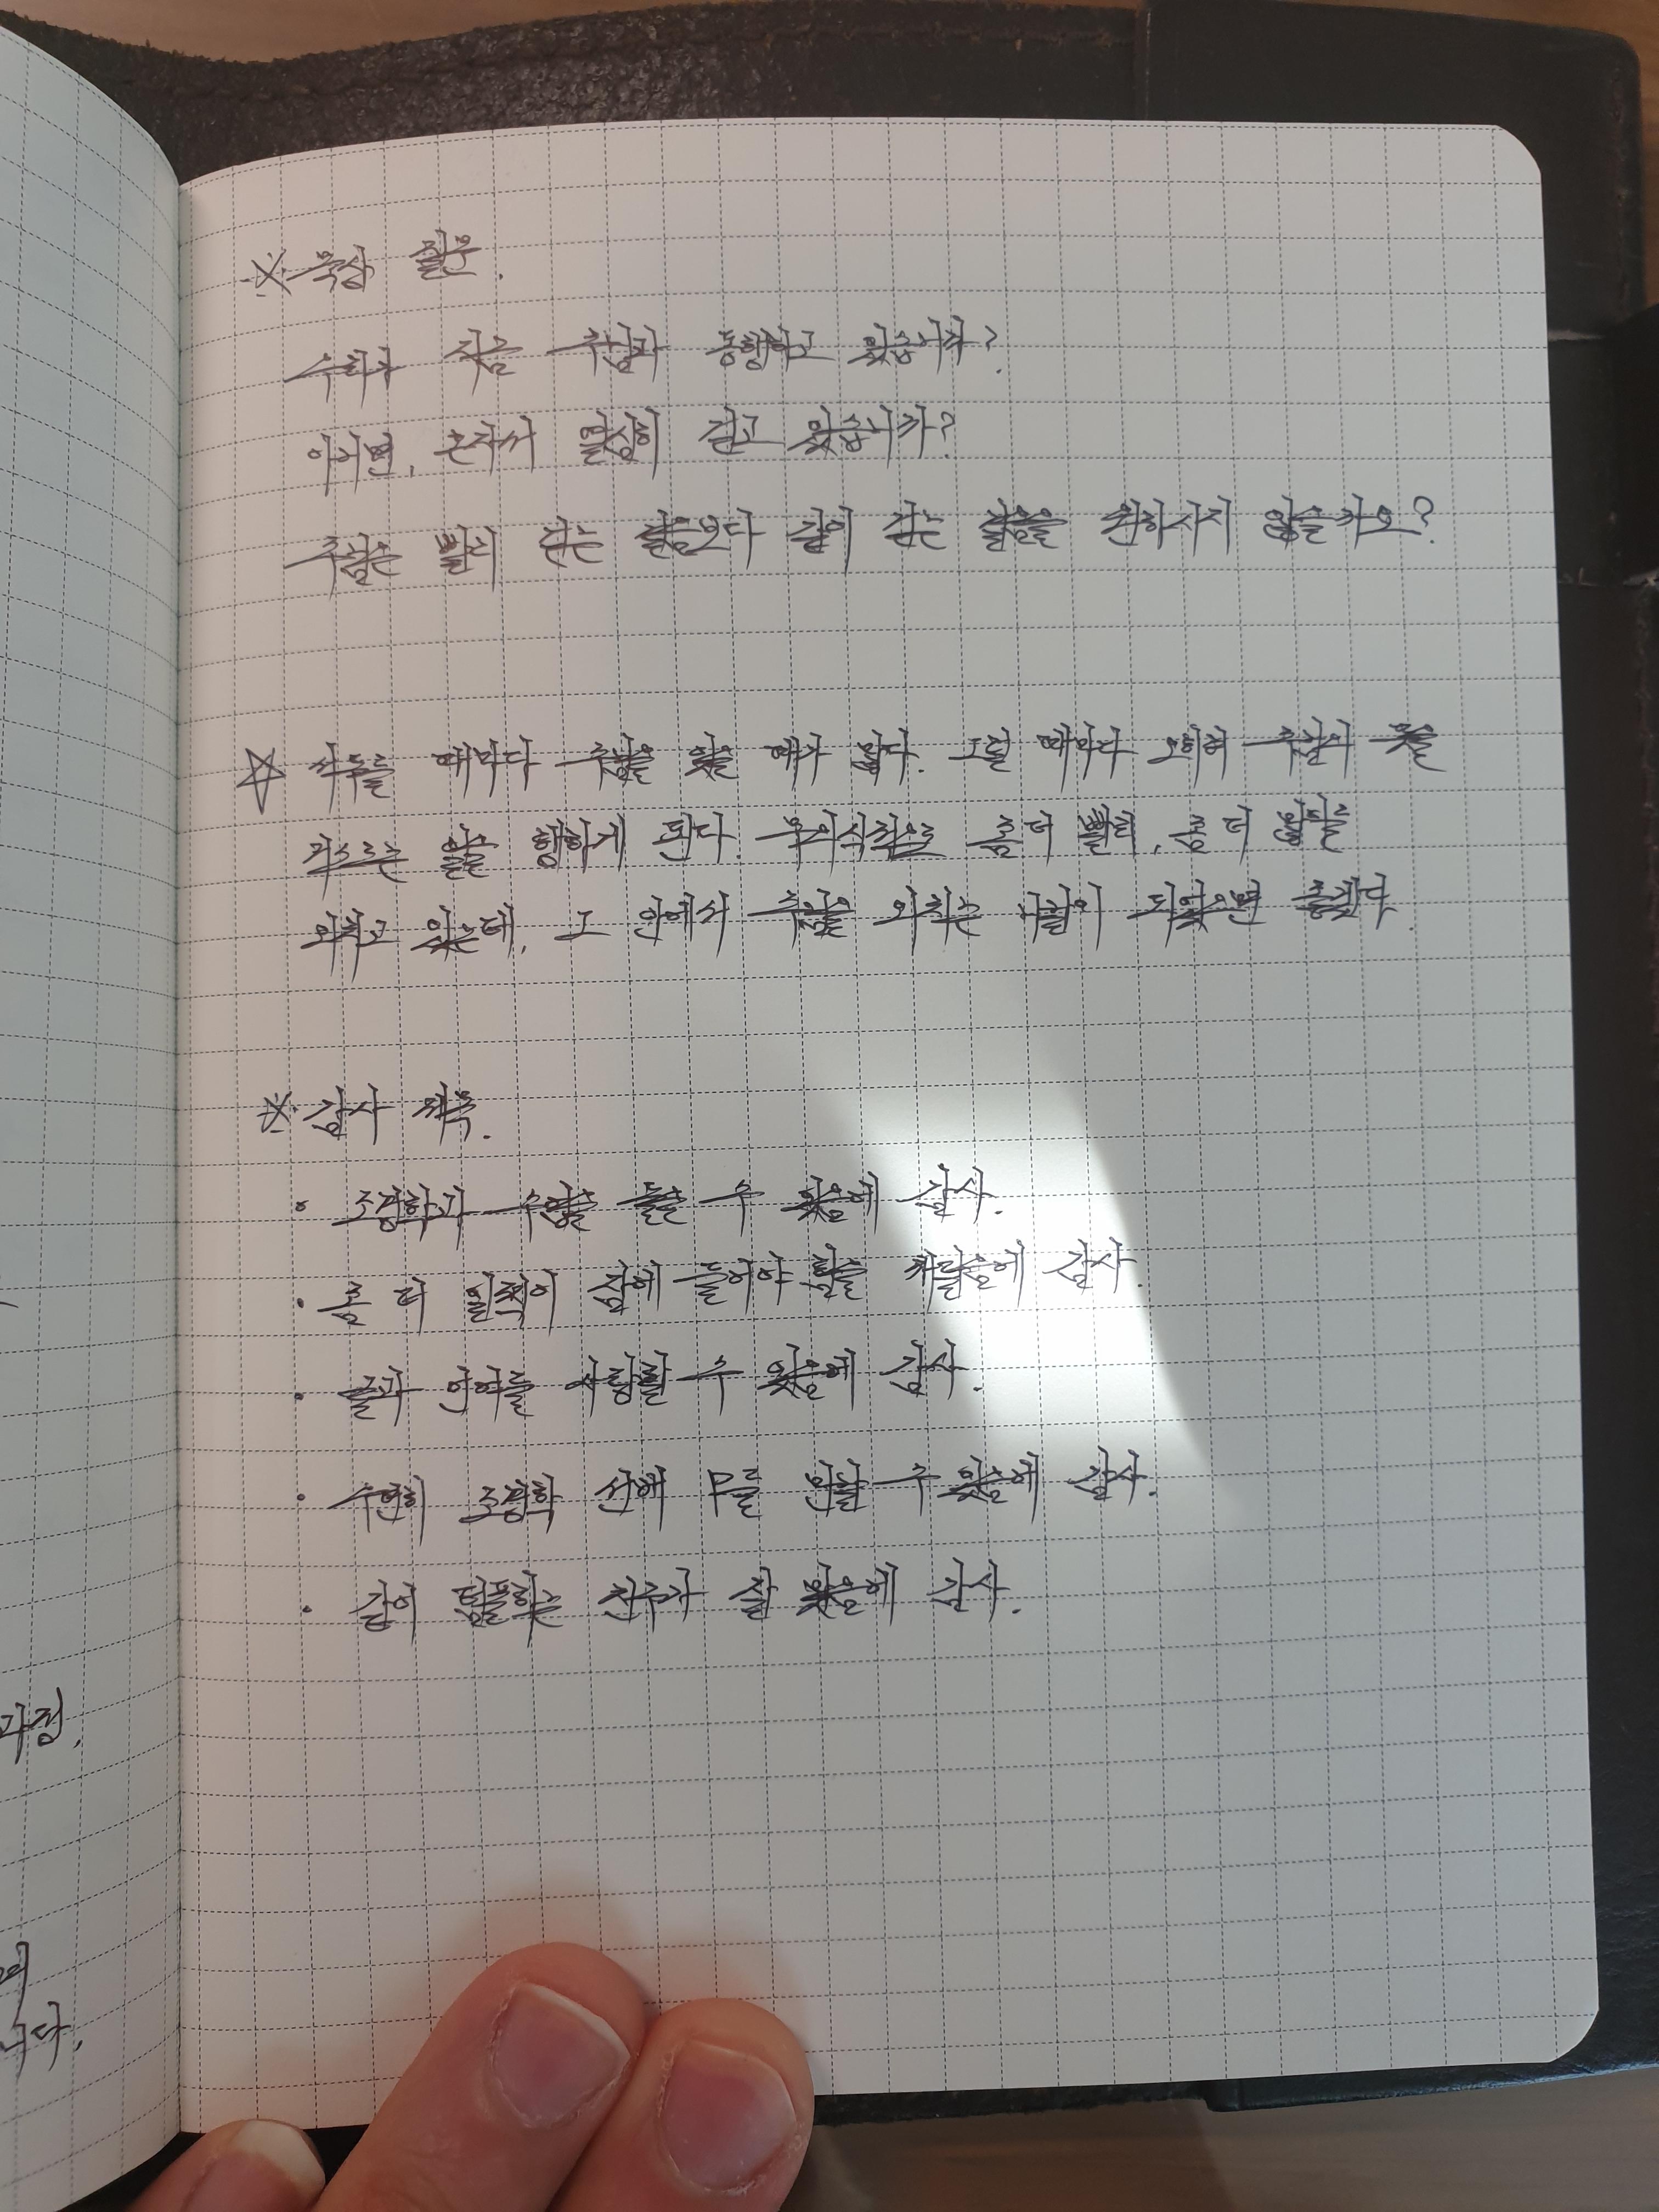 과정.
니다.
※ 묵상 질문.
지금 주님과 동행하고 있습니까?
아니면, 혼자서 열심히 걷고 있습니까?
주님은 빨리 걷는 삶보다 같이 걷는 삶을 원하시지 않을까요?
☆ 서두를 때마다 주님을 잊을 때가 많다. 그럴 때마다 오히려 주님의 뜻을
거스르는 일을 행하게 된다. 무의식적으로 좀 더 빨리, 좀 더 많이를
외치고 있는데, 그 안에서 주님을 외치는 나날이 되었으면 좋겠다.
※ 감사 제목.
• 조경학과 수업을 들을 수 있음에 감사.
• 좀 더 일찍이 잠에 들어야 함을 깨달음에 감사.
• 언어를 사랑할 수 있음에 감사.
• 조경학 선배 만날 수 있음에 감사.
• 같이 팀플하는 친구가 잘 있음에 감사.